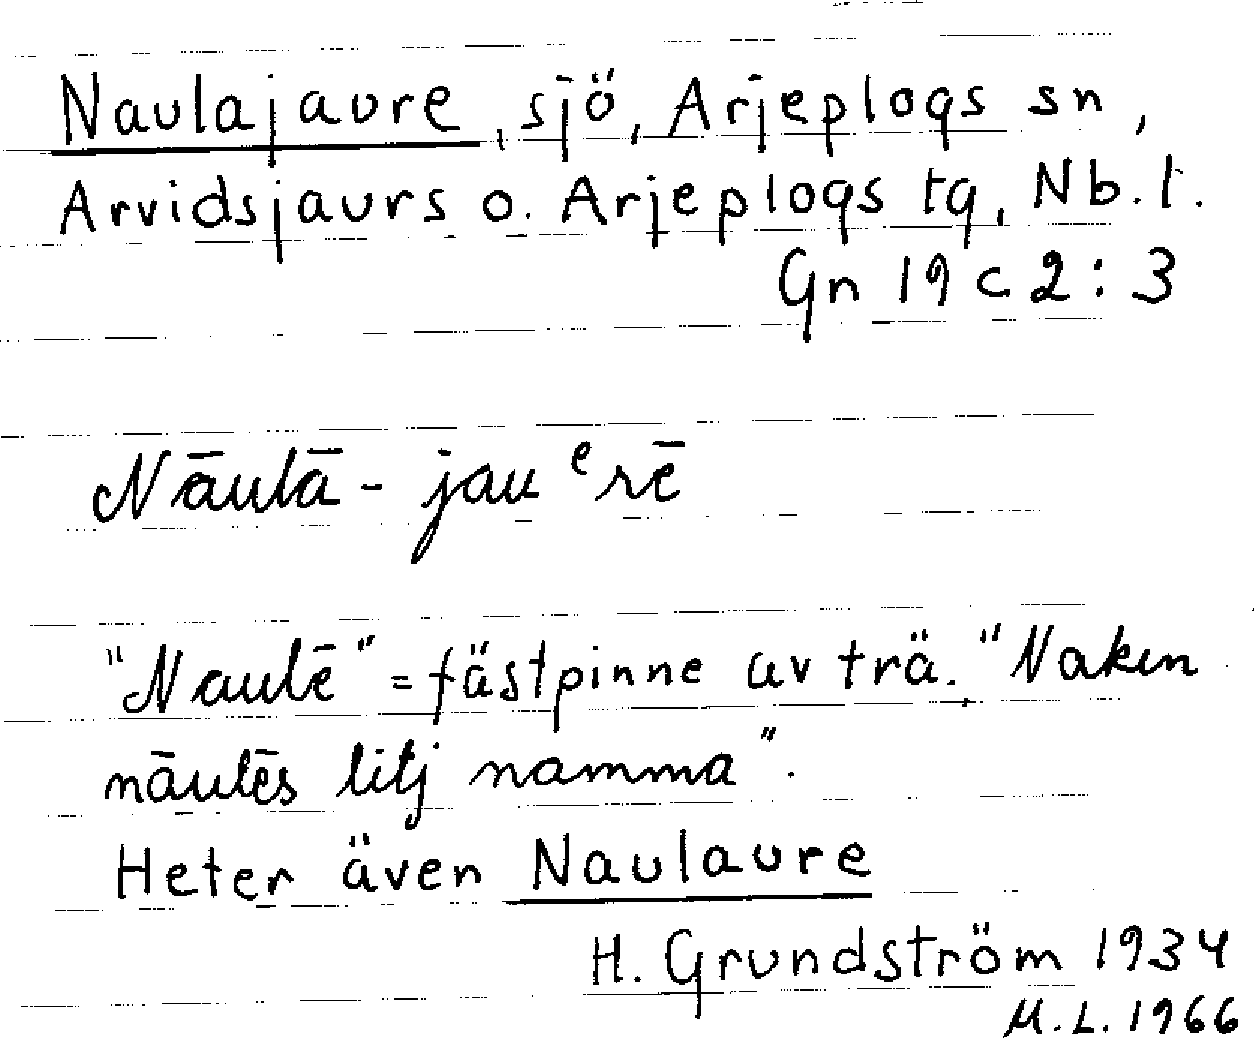 Naulajaure, sjö, Arjeplogs sn,
Arvidsjaurs o. Arjeplogs tg, Nb. l.
Gn 19 c 2 : 3
Nāulā - jauᵉrē
"Naulē" = fästpinne av trä. "Naken
nāulēs litj namma".
Heter även Naulaure
H. Grundström 1934
M.L. 1966